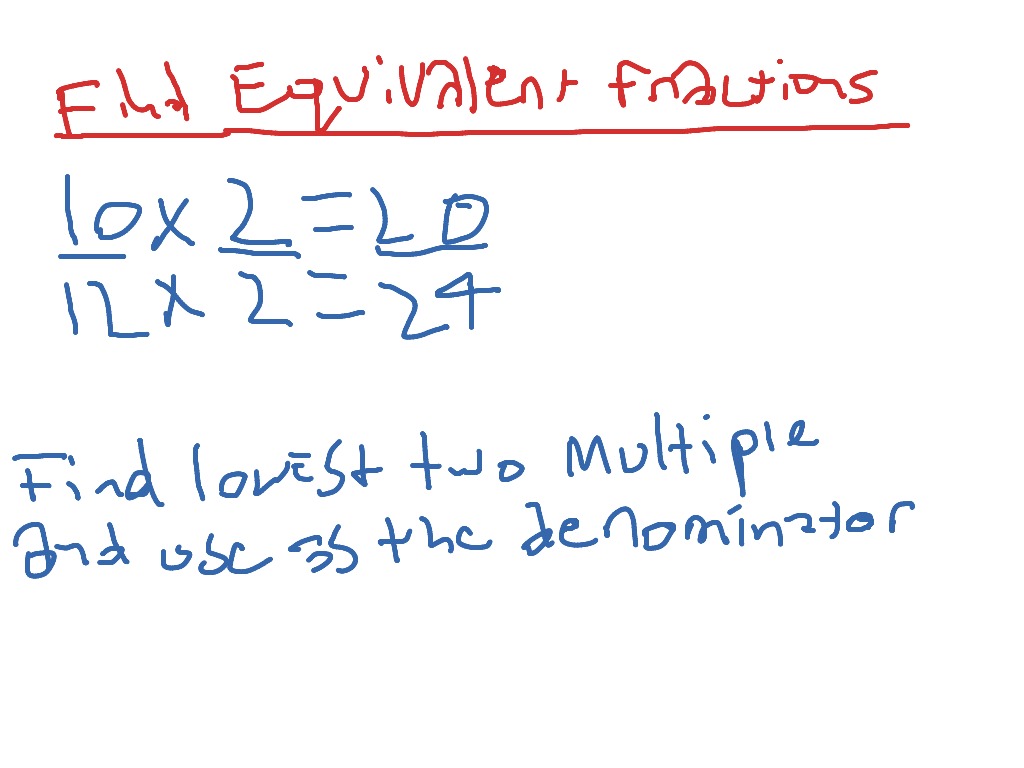 Find Equivalent fractions
10 x 2 = 20
12 x 2 = 24
Find lowest two Multiple
and use as the denominator